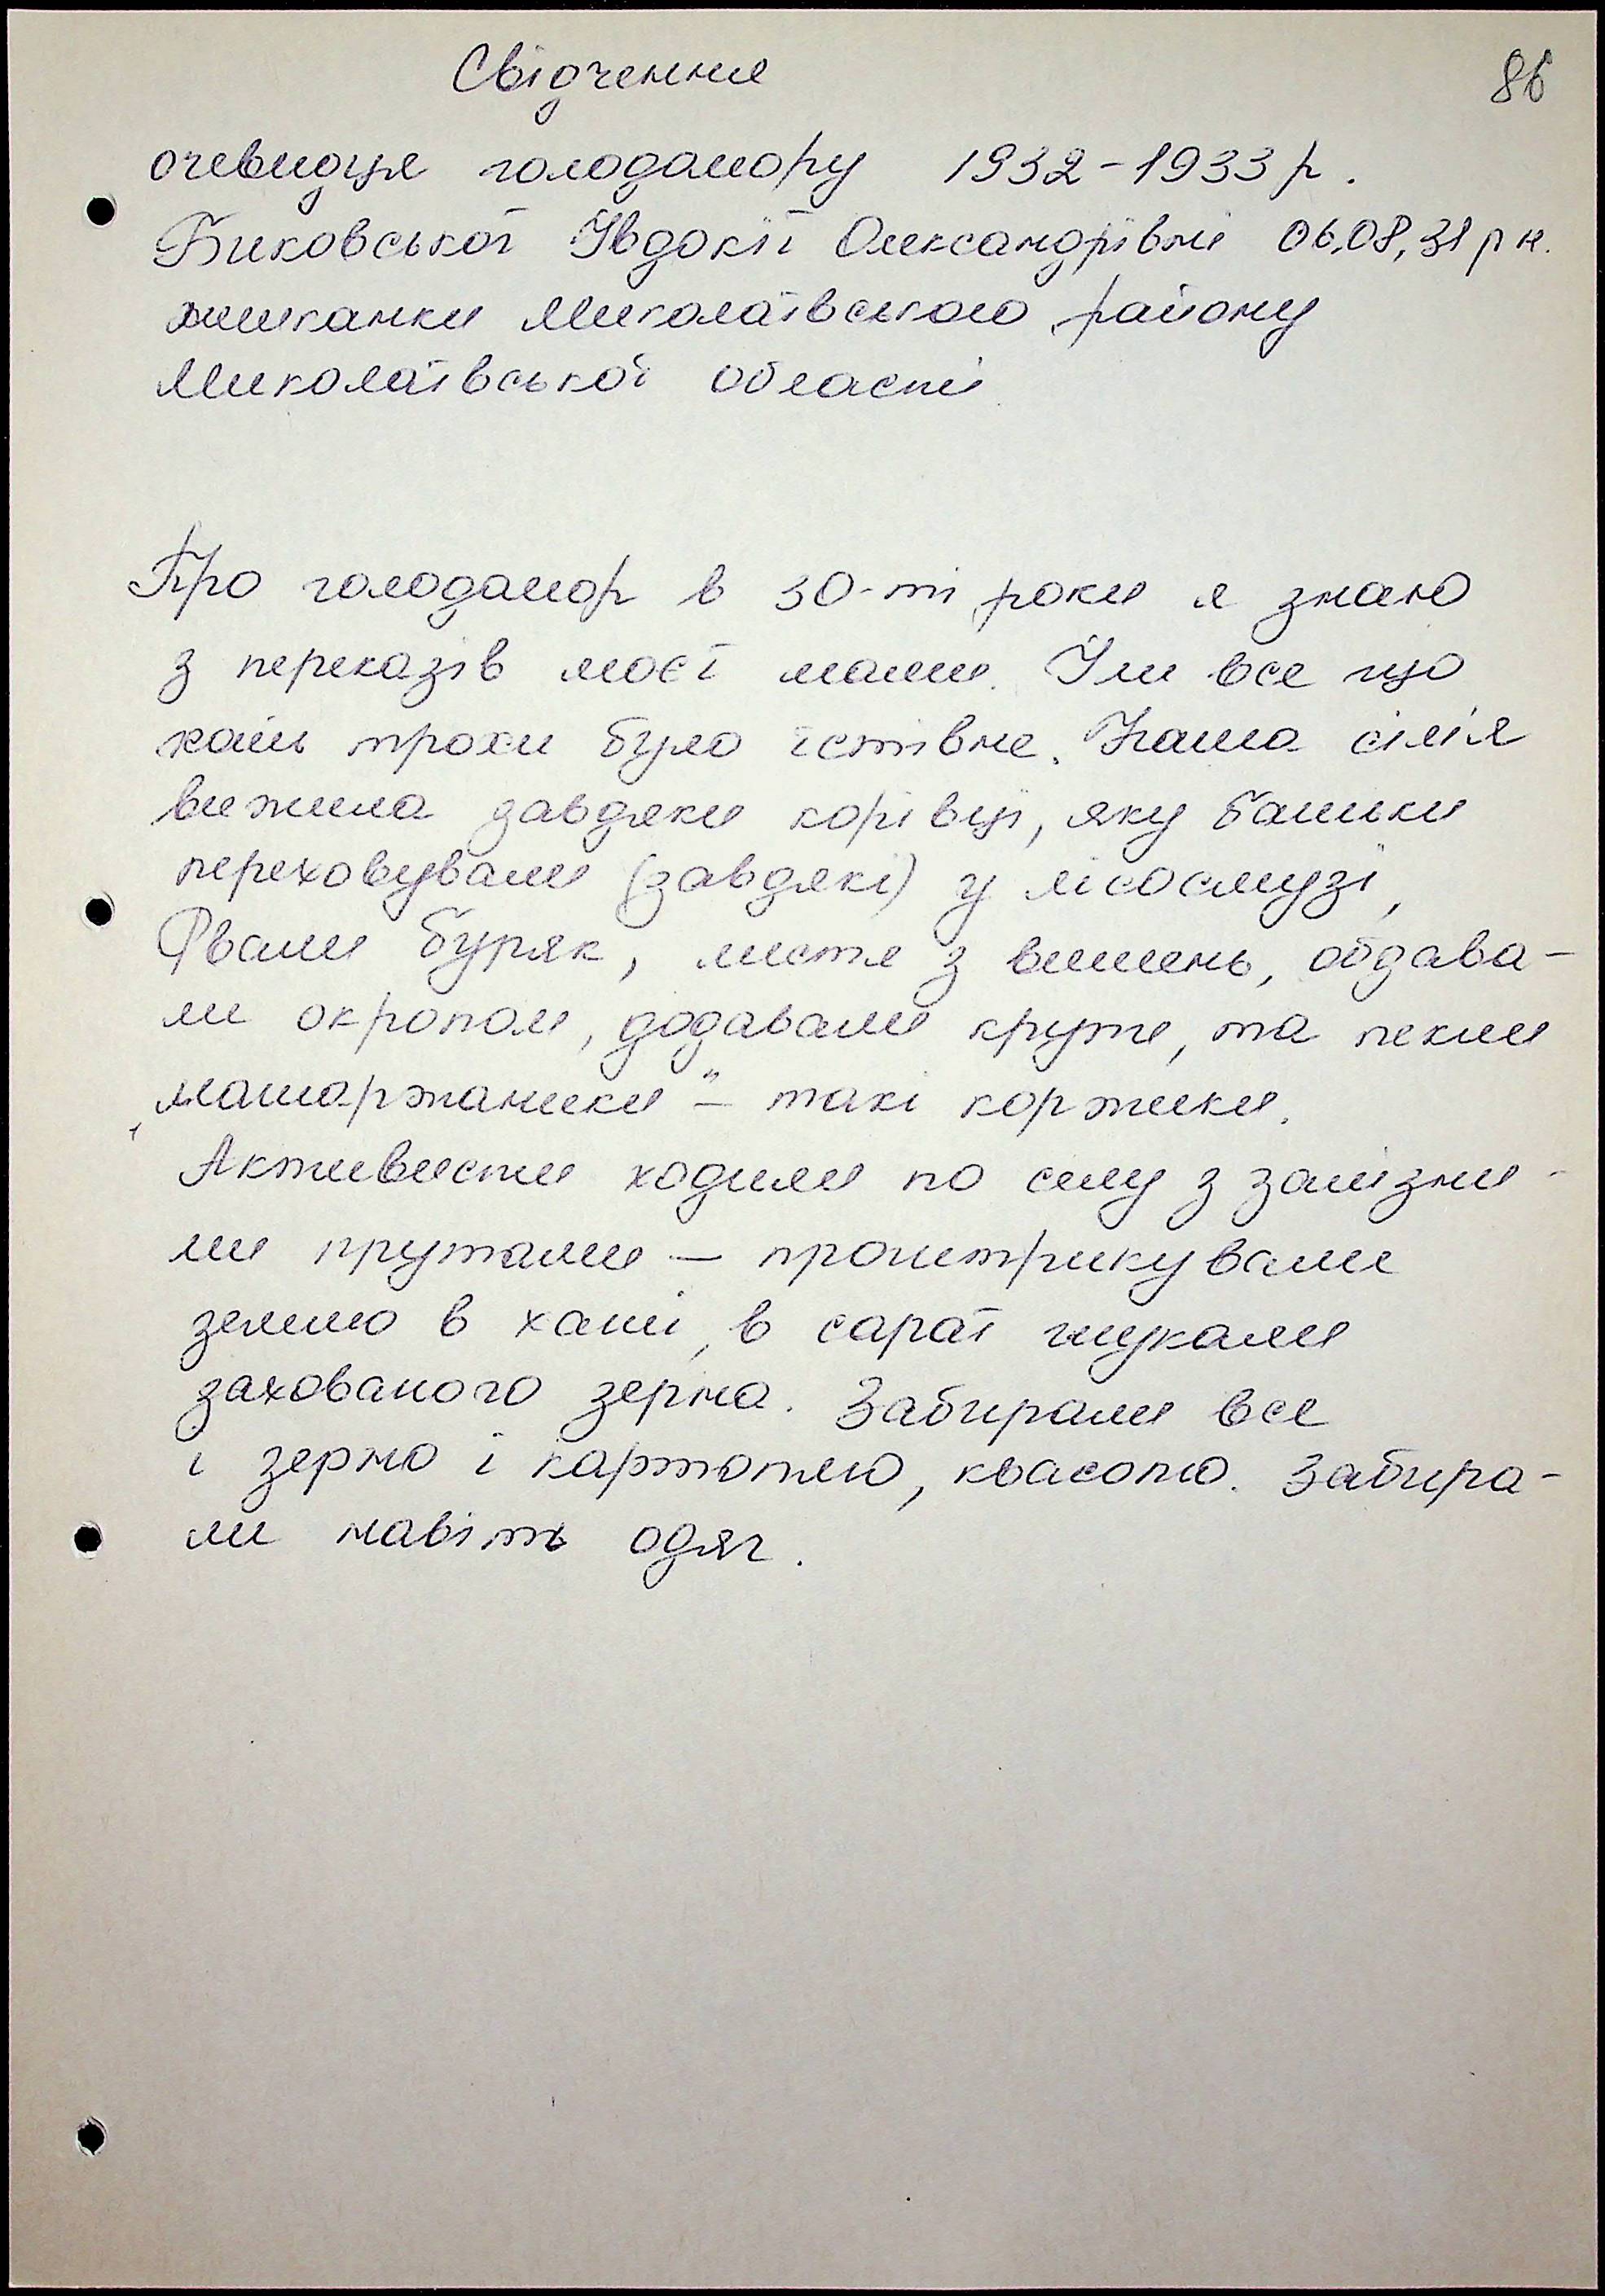 Свідчення
86
очевидця голодомору 1932-1933 р.
Биковської Явдокії Олександрівни 06.08,31 р н.
жишканки Миколаївського району
Миколаївської області
Про голодомор в 30-ті роки я знаю
з переказів моєї мами. Їли все що
хоть трохи було їстівне. Наша сім'я
вижила завдяки корівці, яку батьки
переховували (завдякі) у лісосмузі,
Рвали буряк, листя з вишень, обдава-
ли окропом, додавали крупи, та пекли
„маторжаники" – такі коржики.
Активисти ходили по селу з залізни-
ми прутами – проштрикували
землю в хаті, в сараї шукали
захованого зерна. Забирали все
і зерно і картоплю, квасолю. Забира-
ли навіть одяг.